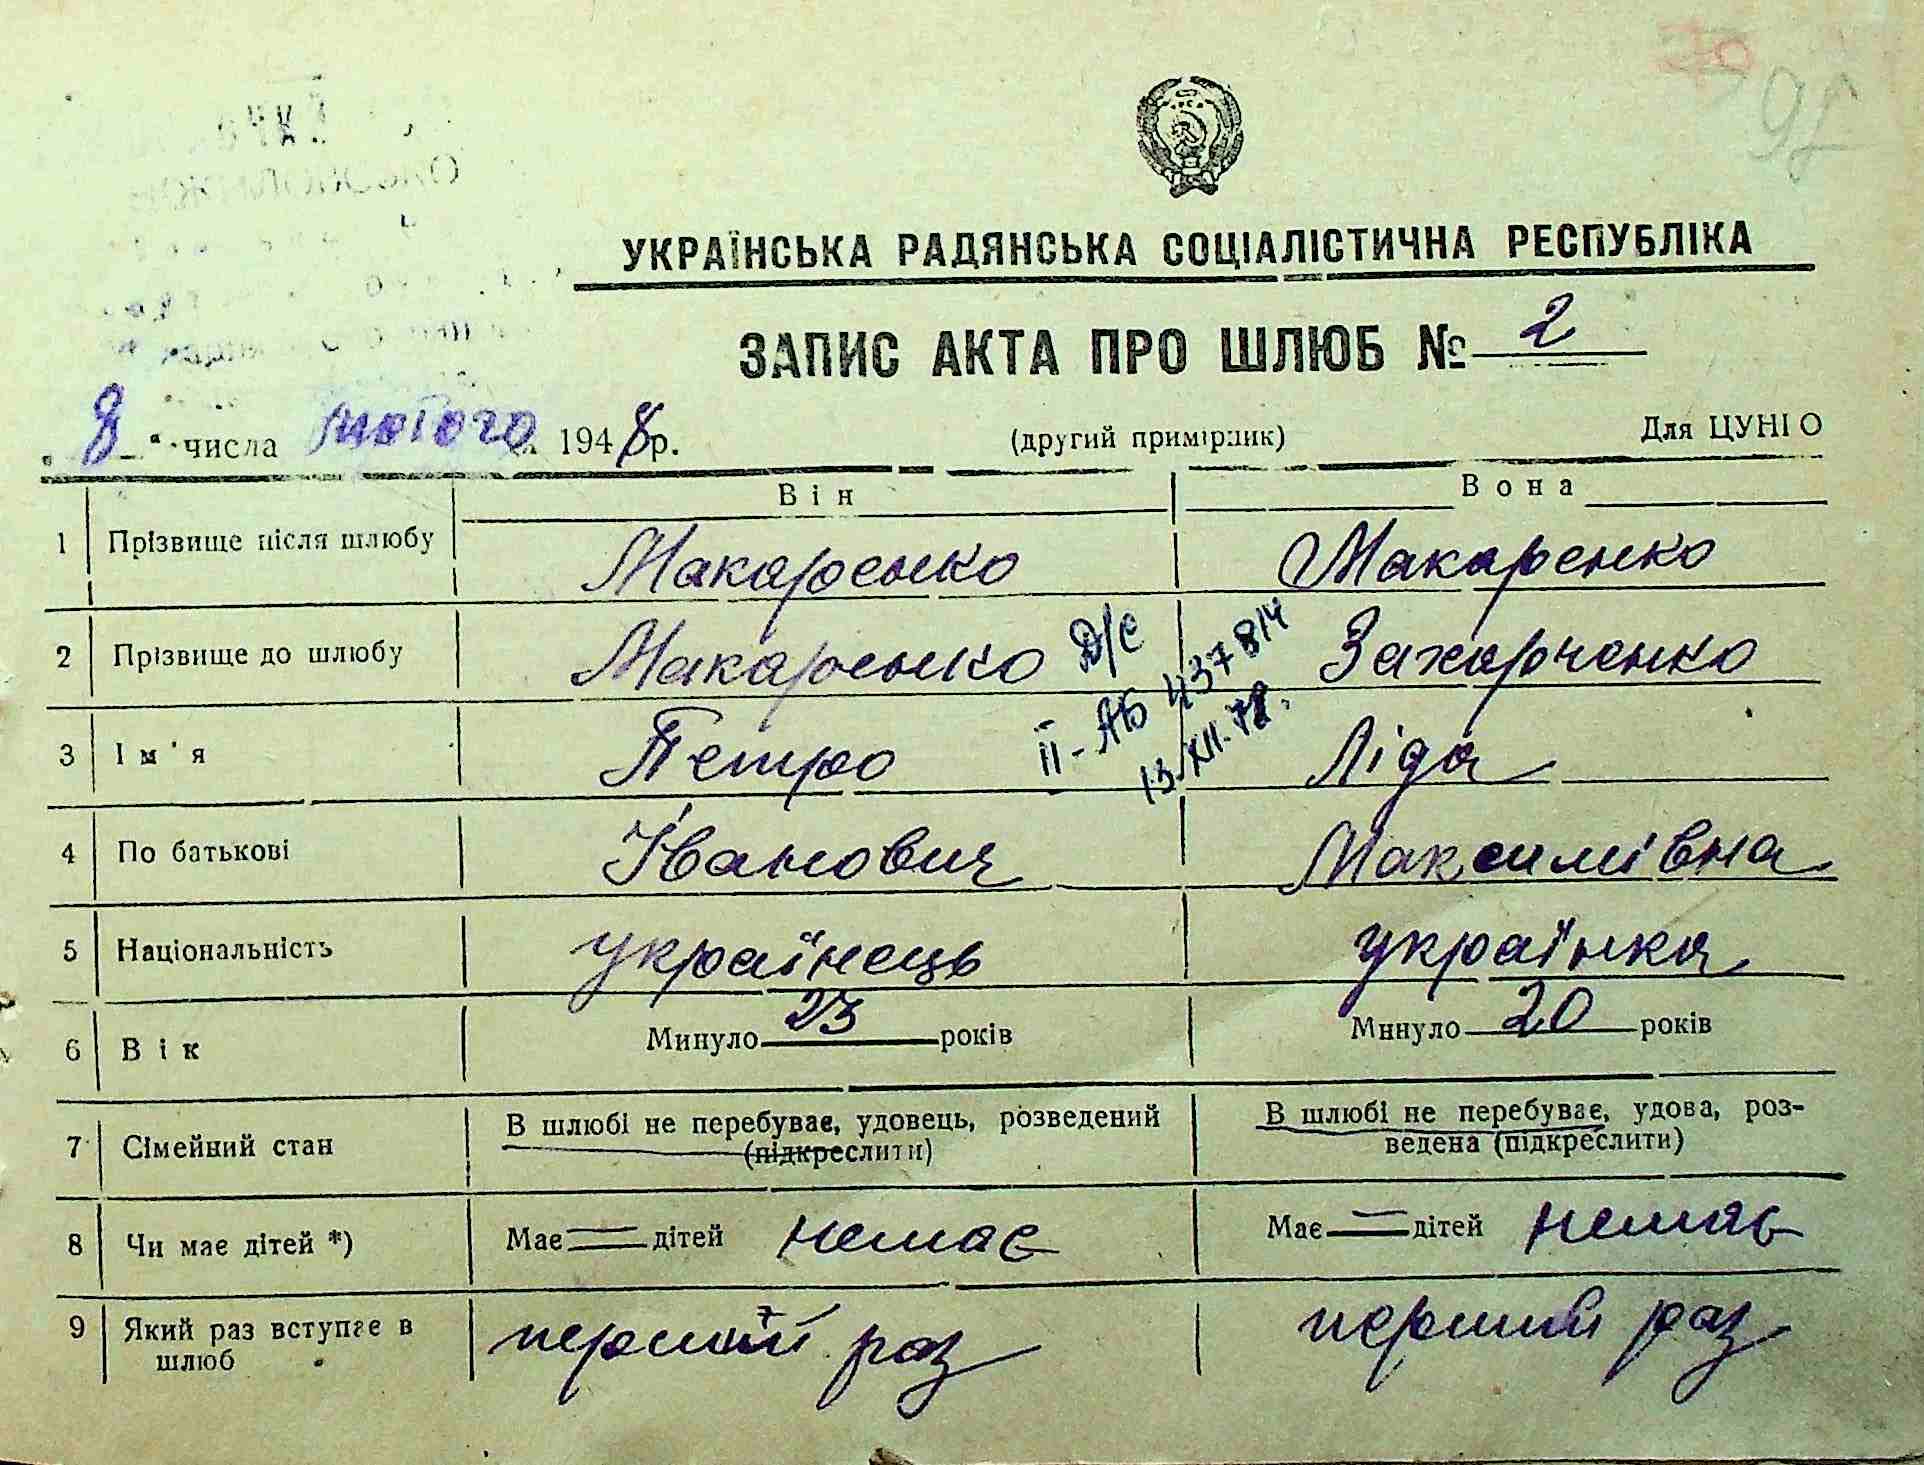 УКРАЇНСЬКА РАДЯНСЬКА СОЦІАЛІСТИЧНА РЕСПУБЛІКА
ЗАПИС АКТА ПРО ШЛЮБ № 2
„8“ числа лютого 1948 р. (другий примірник) Для ЦУНГО
Він Вона
1 Прізвище після шлюбу Макаренко Макаренко
2 Прізвище до шлюбу Макаренко Захарченко
Д/с
ІІ-АБ 437814
13.XII.78.
3 Ім'я Петро Ліда
4 По батькові Іванович Максимівна
5 Національність українець українка
6 Вік Минуло 23 років Минуло 20 років
7 Сімейний стан В шлюбі не перебуває, удовець, розведений В шлюбі не перебуває, удова, роз-
(підкреслити) ведена (підкреслити)
8 Чи має дітей *) Має = дітей немає Має = дітей немає
9 Який раз вступає в перший раз перший раз
шлюб